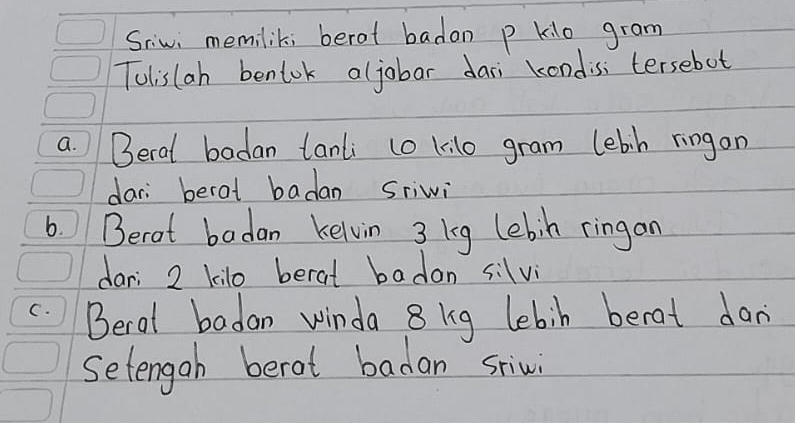 Sriwi memiliki berat badan p kilo gram
Tulislah bentuk aljabar dari kondisi tersebut
a. Berat badan tanti 10 kilo gram lebih ringan
dari berat badan Sriwi
b. Berat badan kelvin 3 kg lebih ringan
dari 2 kilo berat badan silvi
c. Berat badan winda 8 kg lebih berat dari
Setengah berat badan sriwi